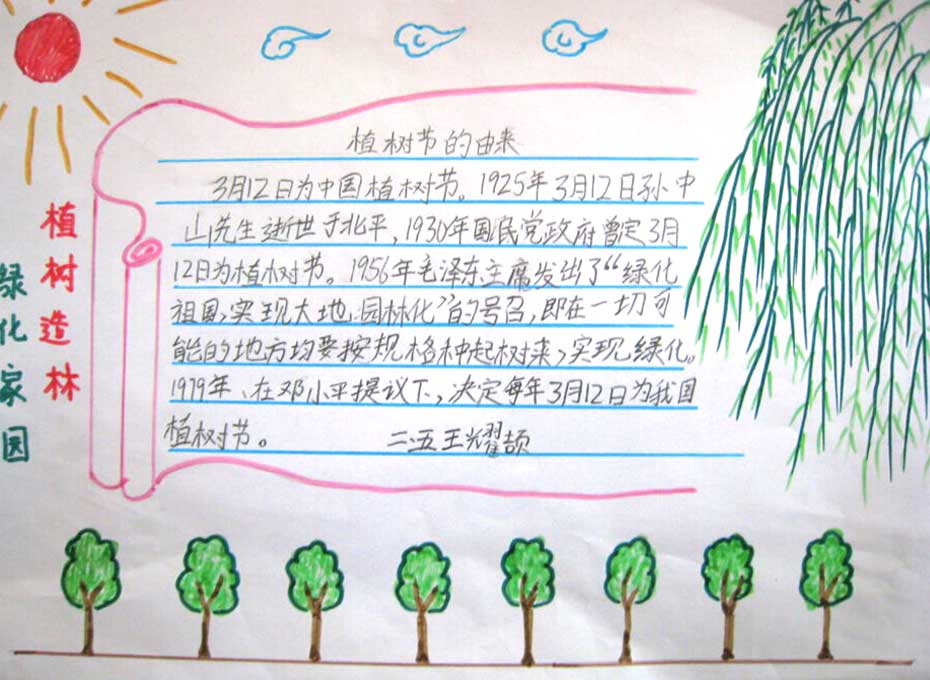 植树节的由来
3月12日为中国植树节。1925年3月12日孙中
山先生逝世于北平,1930年国民党政府曾定3月
12日为植树节。1956年毛泽东主席发出了“绿化
祖国,实现大地园林化”的号召,即在一切可
能的地方均要按规格种起树来,实现绿化。
1979年、在邓小平提议下,决定每年3月12日为我国
植树节。
二.五王耀颉
植树造林
绿化家园